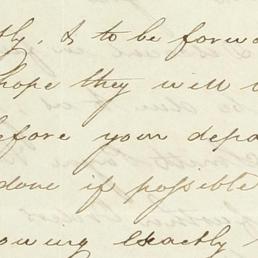 tly, & to be forwa
hope they will
efore your depa
done if possible
owing exactly